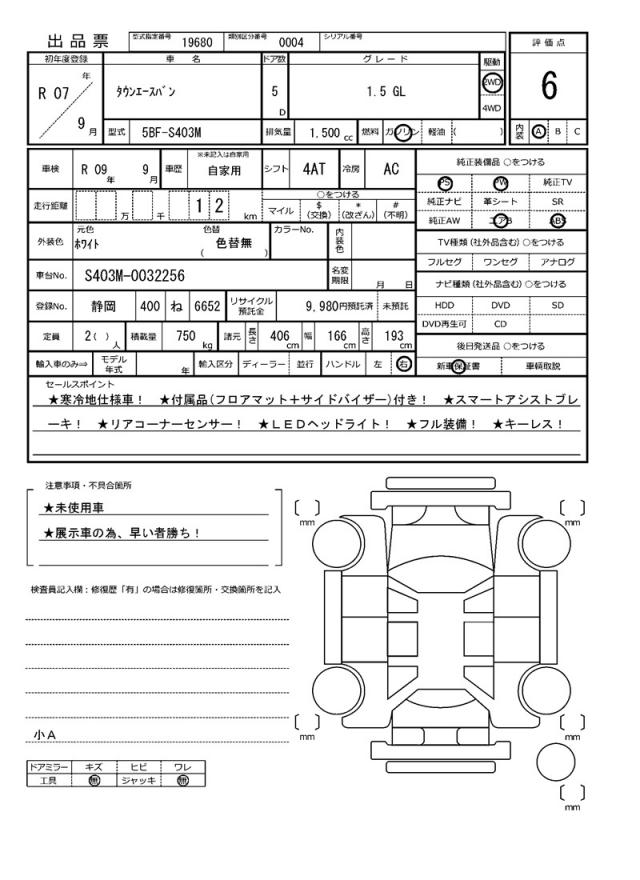 出 品 票 型式指定番号 19680 類別区分番号 0004 シリアル番号
評 価 点
6
内装 A B C
初年度登録 車 名 ドア数 グ レ ー ド 駆動
R 07 年 9 月 ﾀｳﾝｴｰｽﾊﾞﾝ 5 D 1.5 GL 2WD 4WD
型式 5BF-S403M 排気量 1.500 cc 燃料 ガソリン 軽油 ( )
車検 R 09 年 9 月 車歴 ※未記入は自家用 自家用 シフト 4AT 冷房 AC
走行距離 万 千 1 2 km ○をつける
マイル $ (交換) * (改ざん) # (不明)
外装色 元色 ﾎﾜｲﾄ 色替 ( 色替無 ) カラーNo. 内装色
車台No. S403M-0032256 名変期限 月 日
登録No. 静岡 400 ね 6652 リサイクル預託金 9,980円預託済 未預託
定員 2( ) 人 積載量 750 kg 諸元 長さ 406 cm 幅 166 cm 高さ 193 cm
輸入車のみ⇒ モデル年式 年 輸入区分 ディーラー 並行 ハンドル 左 右
純正装備品 ○をつける
PS PW 純正TV
純正ナビ 革シート SR
純正AW エアB ABS
TV種類 (社外品含む) ○をつける
フルセグ ワンセグ アナログ
ナビ種類 (社外品含む) ○をつける
HDD DVD SD
DVD再生可 CD
後日発送品 ○をつける
新車保証書 車輌取説
セールスポイント
★寒冷地仕様車！ ★付属品(フロアマット＋サイドバイザー)付き！ ★スマートアシストブレ
ーキ！ ★リアコーナーセンサー！ ★ＬＥＤヘッドライト！ ★フル装備！ ★キーレス！
注意事項・不具合箇所
★未使用車
★展示車の為、早い者勝ち！
検査員記入欄：修復歴「有」の場合は修復箇所・交換箇所を記入
小Ａ
ドアミラー キズ ヒビ ワレ
工具 無 ジャッキ 無
[ ] mm
[ ] mm
[ ] mm
[ ] mm
[ ] mm